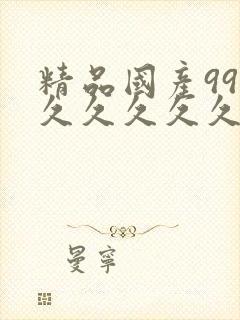 精品國產99
久久久久久
曼寧